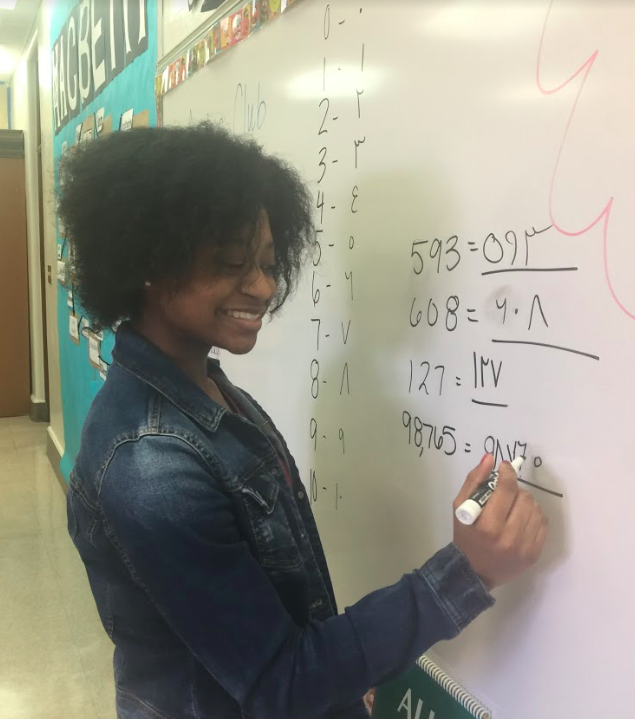 MACBETH
Club
0 - ٠
1 - ١
2 - ٢
3 - ٣
4 - ٤
5 - ٥
6 - ٦
7 - ٧
8 - ٨
9 - ٩
10 - ١٠
593 = ٥٩٣
608 = ٦٠٨
127 = ١٢٧
98,765 = ٩٨٧٦٥